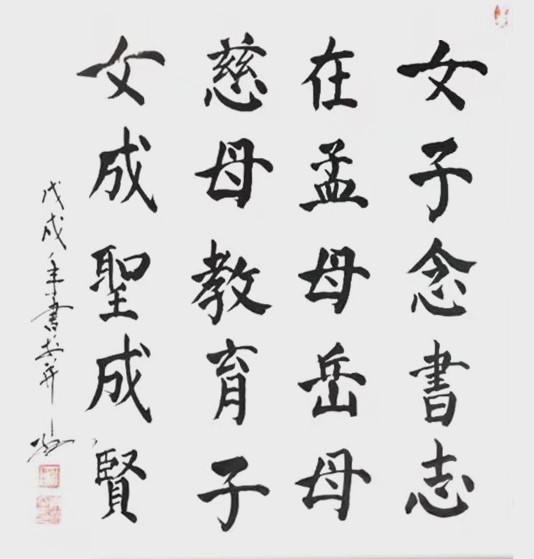 女子念書志
在孟母岳母
慈母教育子
女成聖成賢
戊戌年書於并